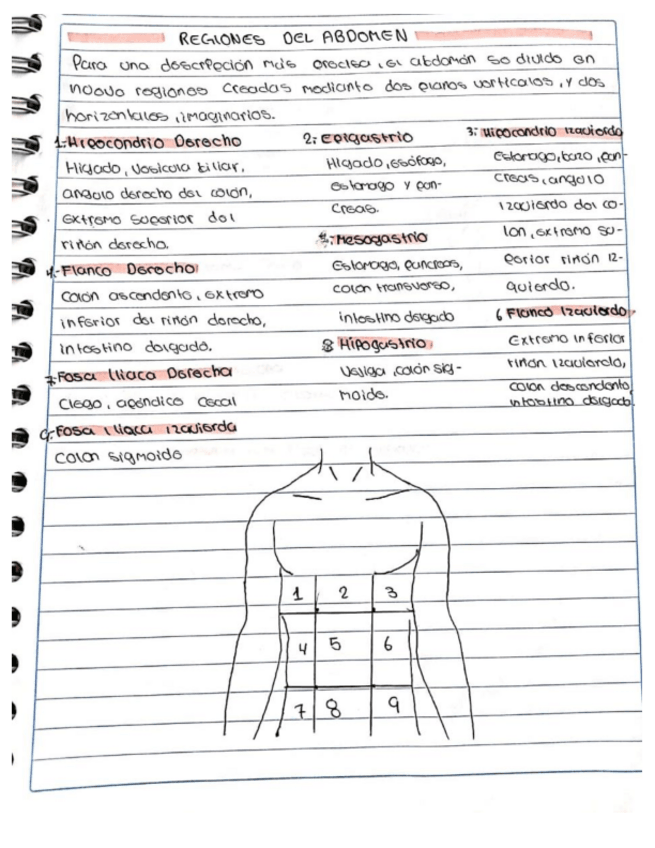 REGIONES DEL ABDOMEN
Para una descripción más precisa, el abdomen se divide en
nueve regiones creadas mediante dos planos verticales, y dos
horizontales, imaginarios.
1.-Hipocondrio Derecho
Higado, Vesicula biliar,
angulo derecho del colón,
extremo superior del
riñón derecho.
2.- Epigastrio
Higado, esófago,
estomago y pan-
creas.
3.- Hipocondrio Izquierdo
Estomago, bazo, pan-
creas, angulo
izquierdo del co-
lon, extremo su-
perior riñón iz-
quierdo.
4.-Flanco Derecho
Colón ascendente, extremo
inferior del riñón derecho,
intestino delgado.
5.-Mesogastrio
Estomago, pancreas,
colon transverso,
intestino delgado
6 Flanco Izquierdo
Extremo inferior
riñón izquierdo,
colon descendente,
intestino delgado
7.-Fosa Iliaca Derecha
Ciego, apéndice cecal
8 Hipogastrio
Vejiga, colón sig-
moide.
9.-Fosa Iliaca Izquierda
Colon sigmoide
1 2 3
4 5 6
7 8 9